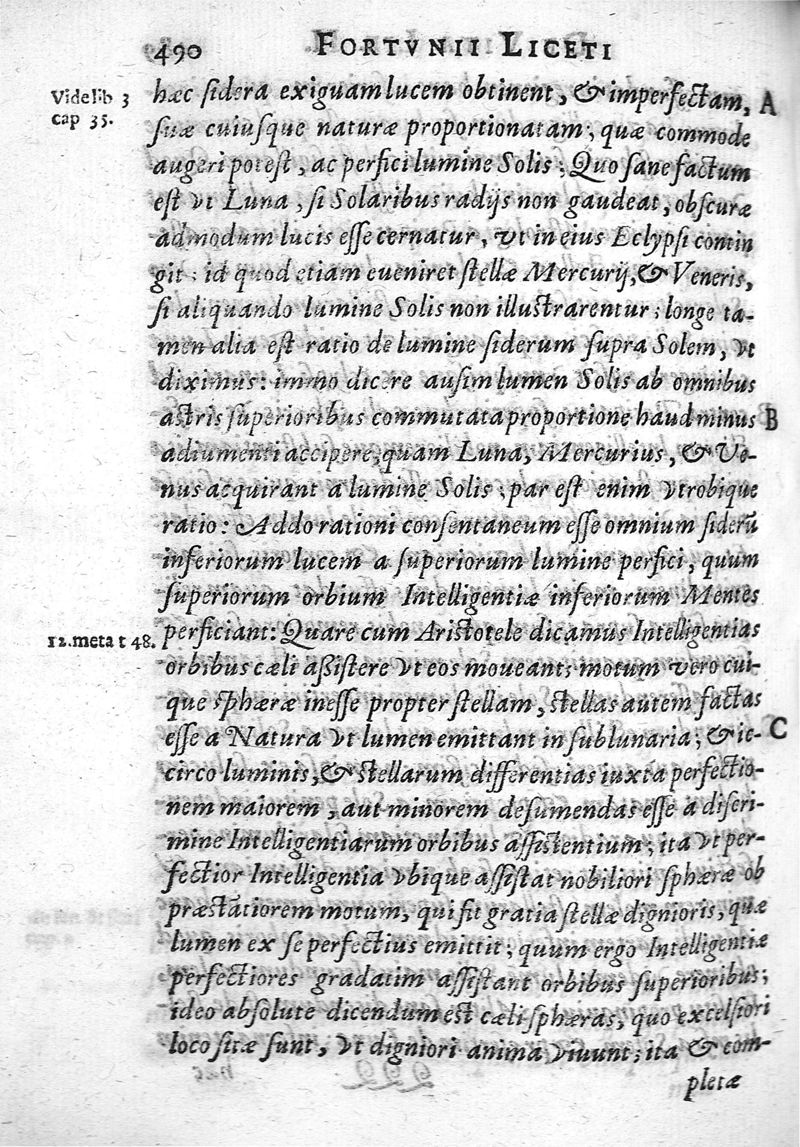 490 FORTVNII LICETI
Vide lib 3
cap 35.
hæc sidera exiguam lucem obtinent, & imperfectam, A
suæ cuiusque naturæ proportionatam; quæ commode
augeri potest, ac perfici lumine Solis; Quo sane factum
est vt Luna, si Solaribus radijs non gaudeat, obscuræ
admodum lucis esse cernatur, vt in eius Eclypsi contin
git: id quod etiam eueniret stellæ Mercurij, & Veneris,
si aliquando lumine Solis non illustrarentur; longe ta-
men alia est ratio de lumine siderum supra Solem, vt
diximus: immo dicere ausim lumen Solis ab omnibus
astris superioribus commutata proportione haud minus B
adiumenti accipere, quam Luna, Mercurius, & Ve-
nus acquirant a lumine Solis; par est enim vtrobique
ratio: Addo rationi consentaneum esse omnium siderũ
inferiorum lucem a superiorum lumine perfici, quum
superiorum orbium Intelligentiæ inferiorum Mentes
12. meta t 48. perficiant: Quare cum Aristotele dicamus Intelligentias
orbibus cæli aßistere vt eos moueant; motum vero cui-
que sphæræ inesse propter stellam, stellas autem factas
esse a Natura vt lumen emittant in sublunaria; & ic- C
circo luminis, & stellarum differentias iuxta perfectio-
nem maiorem, aut minorem desumendas esse a discri-
mine Intelligentiarum orbibus assistentium; ita vt per-
fectior Intelligentia vbique assistat nobiliori sphæræ ob
præstãtiorem motum, qui fit gratia stellæ dignioris, quæ
lumen ex se perfectius emittit; quum ergo Intelligentiæ
perfectiores gradatim assistant orbibus superioribus;
ideo absolute dicendum est cæli sphæras, quo excelsiori
loco sitæ sunt, vt digniori anima viuunt; ita & com-
pletæ